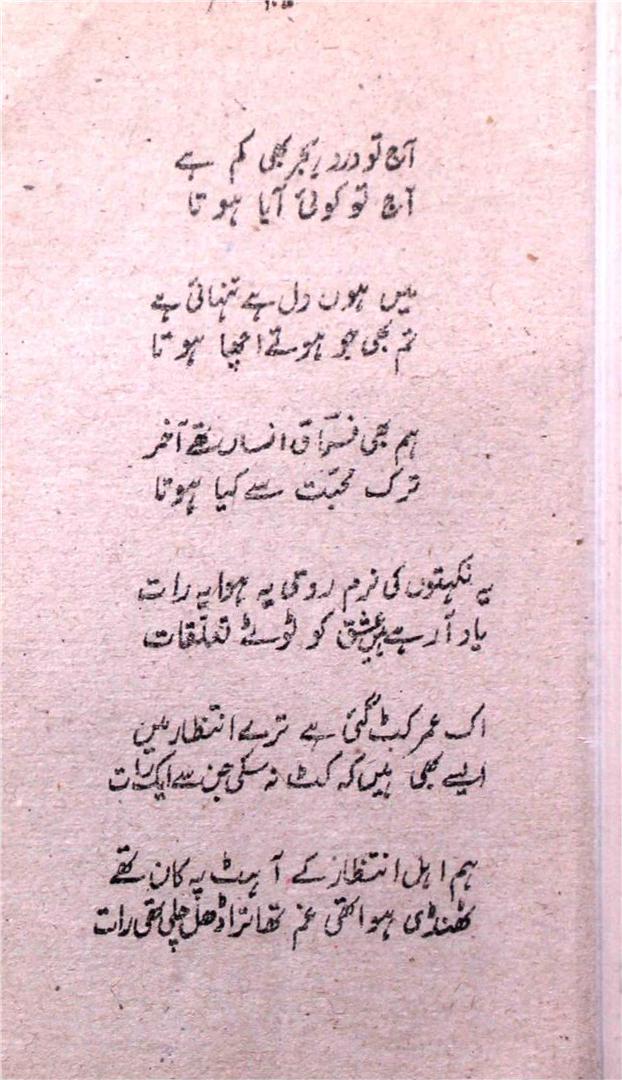 آج تو درد ہجر بھی کم ہے
آج تو کوئی آیا ہوتا
میں ہوں دل ہے تنہائی ہے
تم بھی جو ہوتے اچھا ہوتا
ہم بھی فراق انساں تھے آخر
ترک محبّت سے کیا ہوتا
یہ نکہتوں کی نرم روی یہ ہوا یہ رات
یاد آ رہے ہیں عشق کو ٹوٹے تعلّقات
اک عمر کٹ گئی ہے ترے انتظار میں
ایسے بھی ہیں کہ کٹ نہ سکی جن سے ایک رات
ہم اہل انتظار کے آہٹ پہ کان تھے
ٹھنڈی ہوا تھی غم تھا ترا ڈھل چلی تھی رات